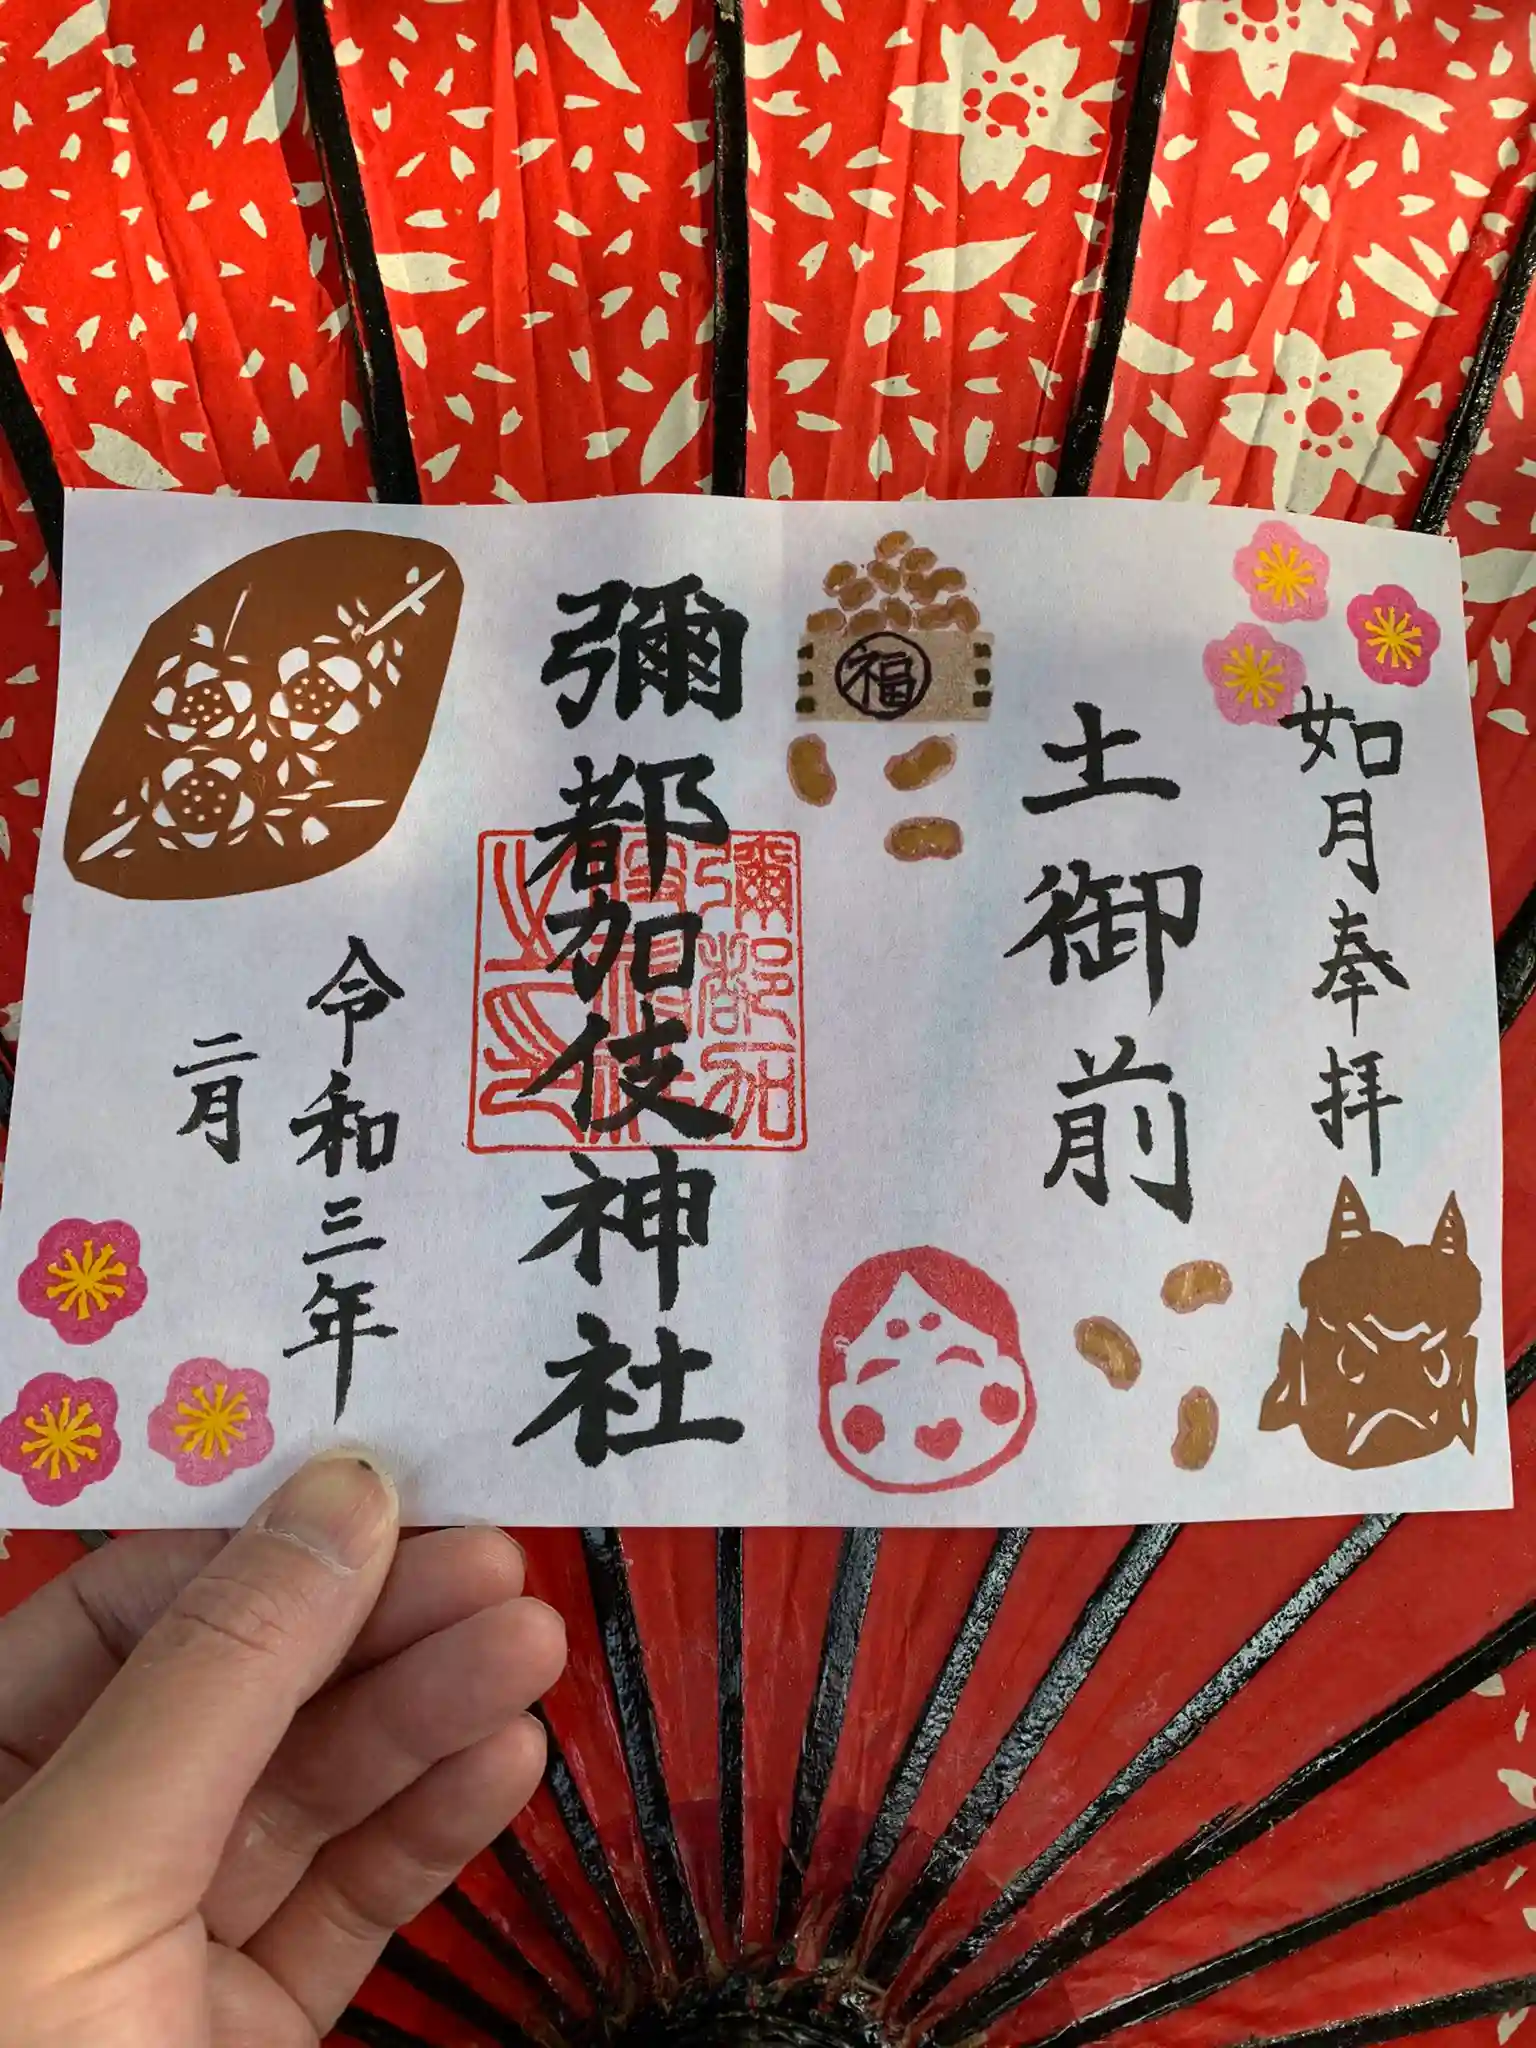 如月奉拝
土御前
福
彌都加伎神社
令和三年
二月
彌都加